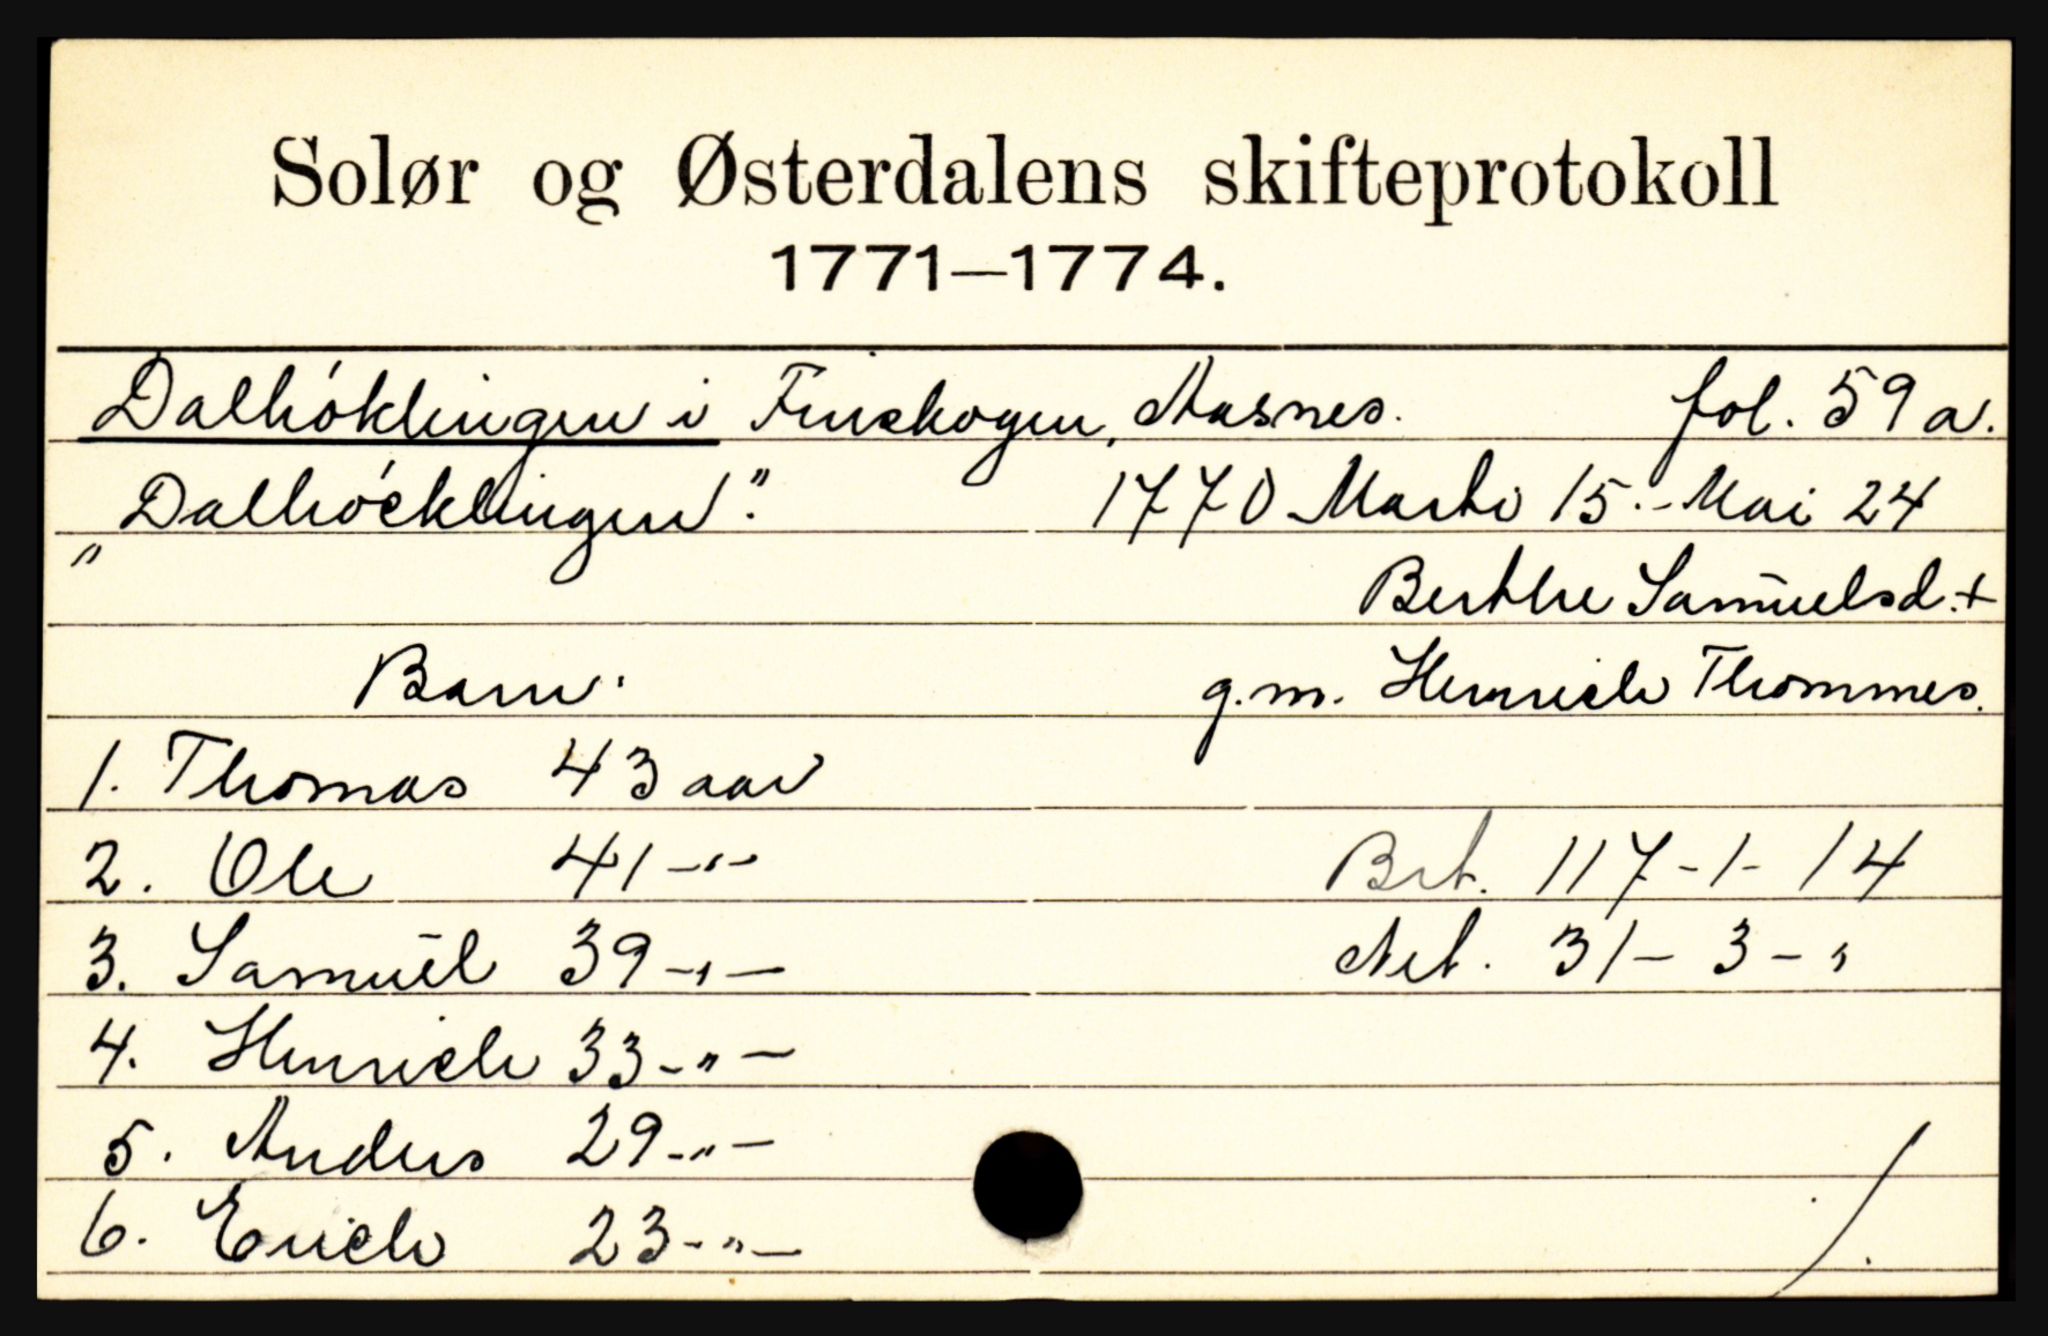 Solør og Østerdalens skifteprotokoll
1771—1774.
Dalhóklingen i Finskogen, Aasnes. fol. 59 a.
"Dalhócklingen". 1770 Marti 15. - Mai 24
Berthe Samuelsd. +
Barn: g.m. Henrich Thommes.
1. Thomas 43 aar
2. Ole 41 -"- Brt. 117 - 1 - 14
3. Samuel 39 -"- Net. 31 - 3 - "
4. Henrich 33 -"-
5. Anders 29 -"-
6. Erich 23 -"-
/.